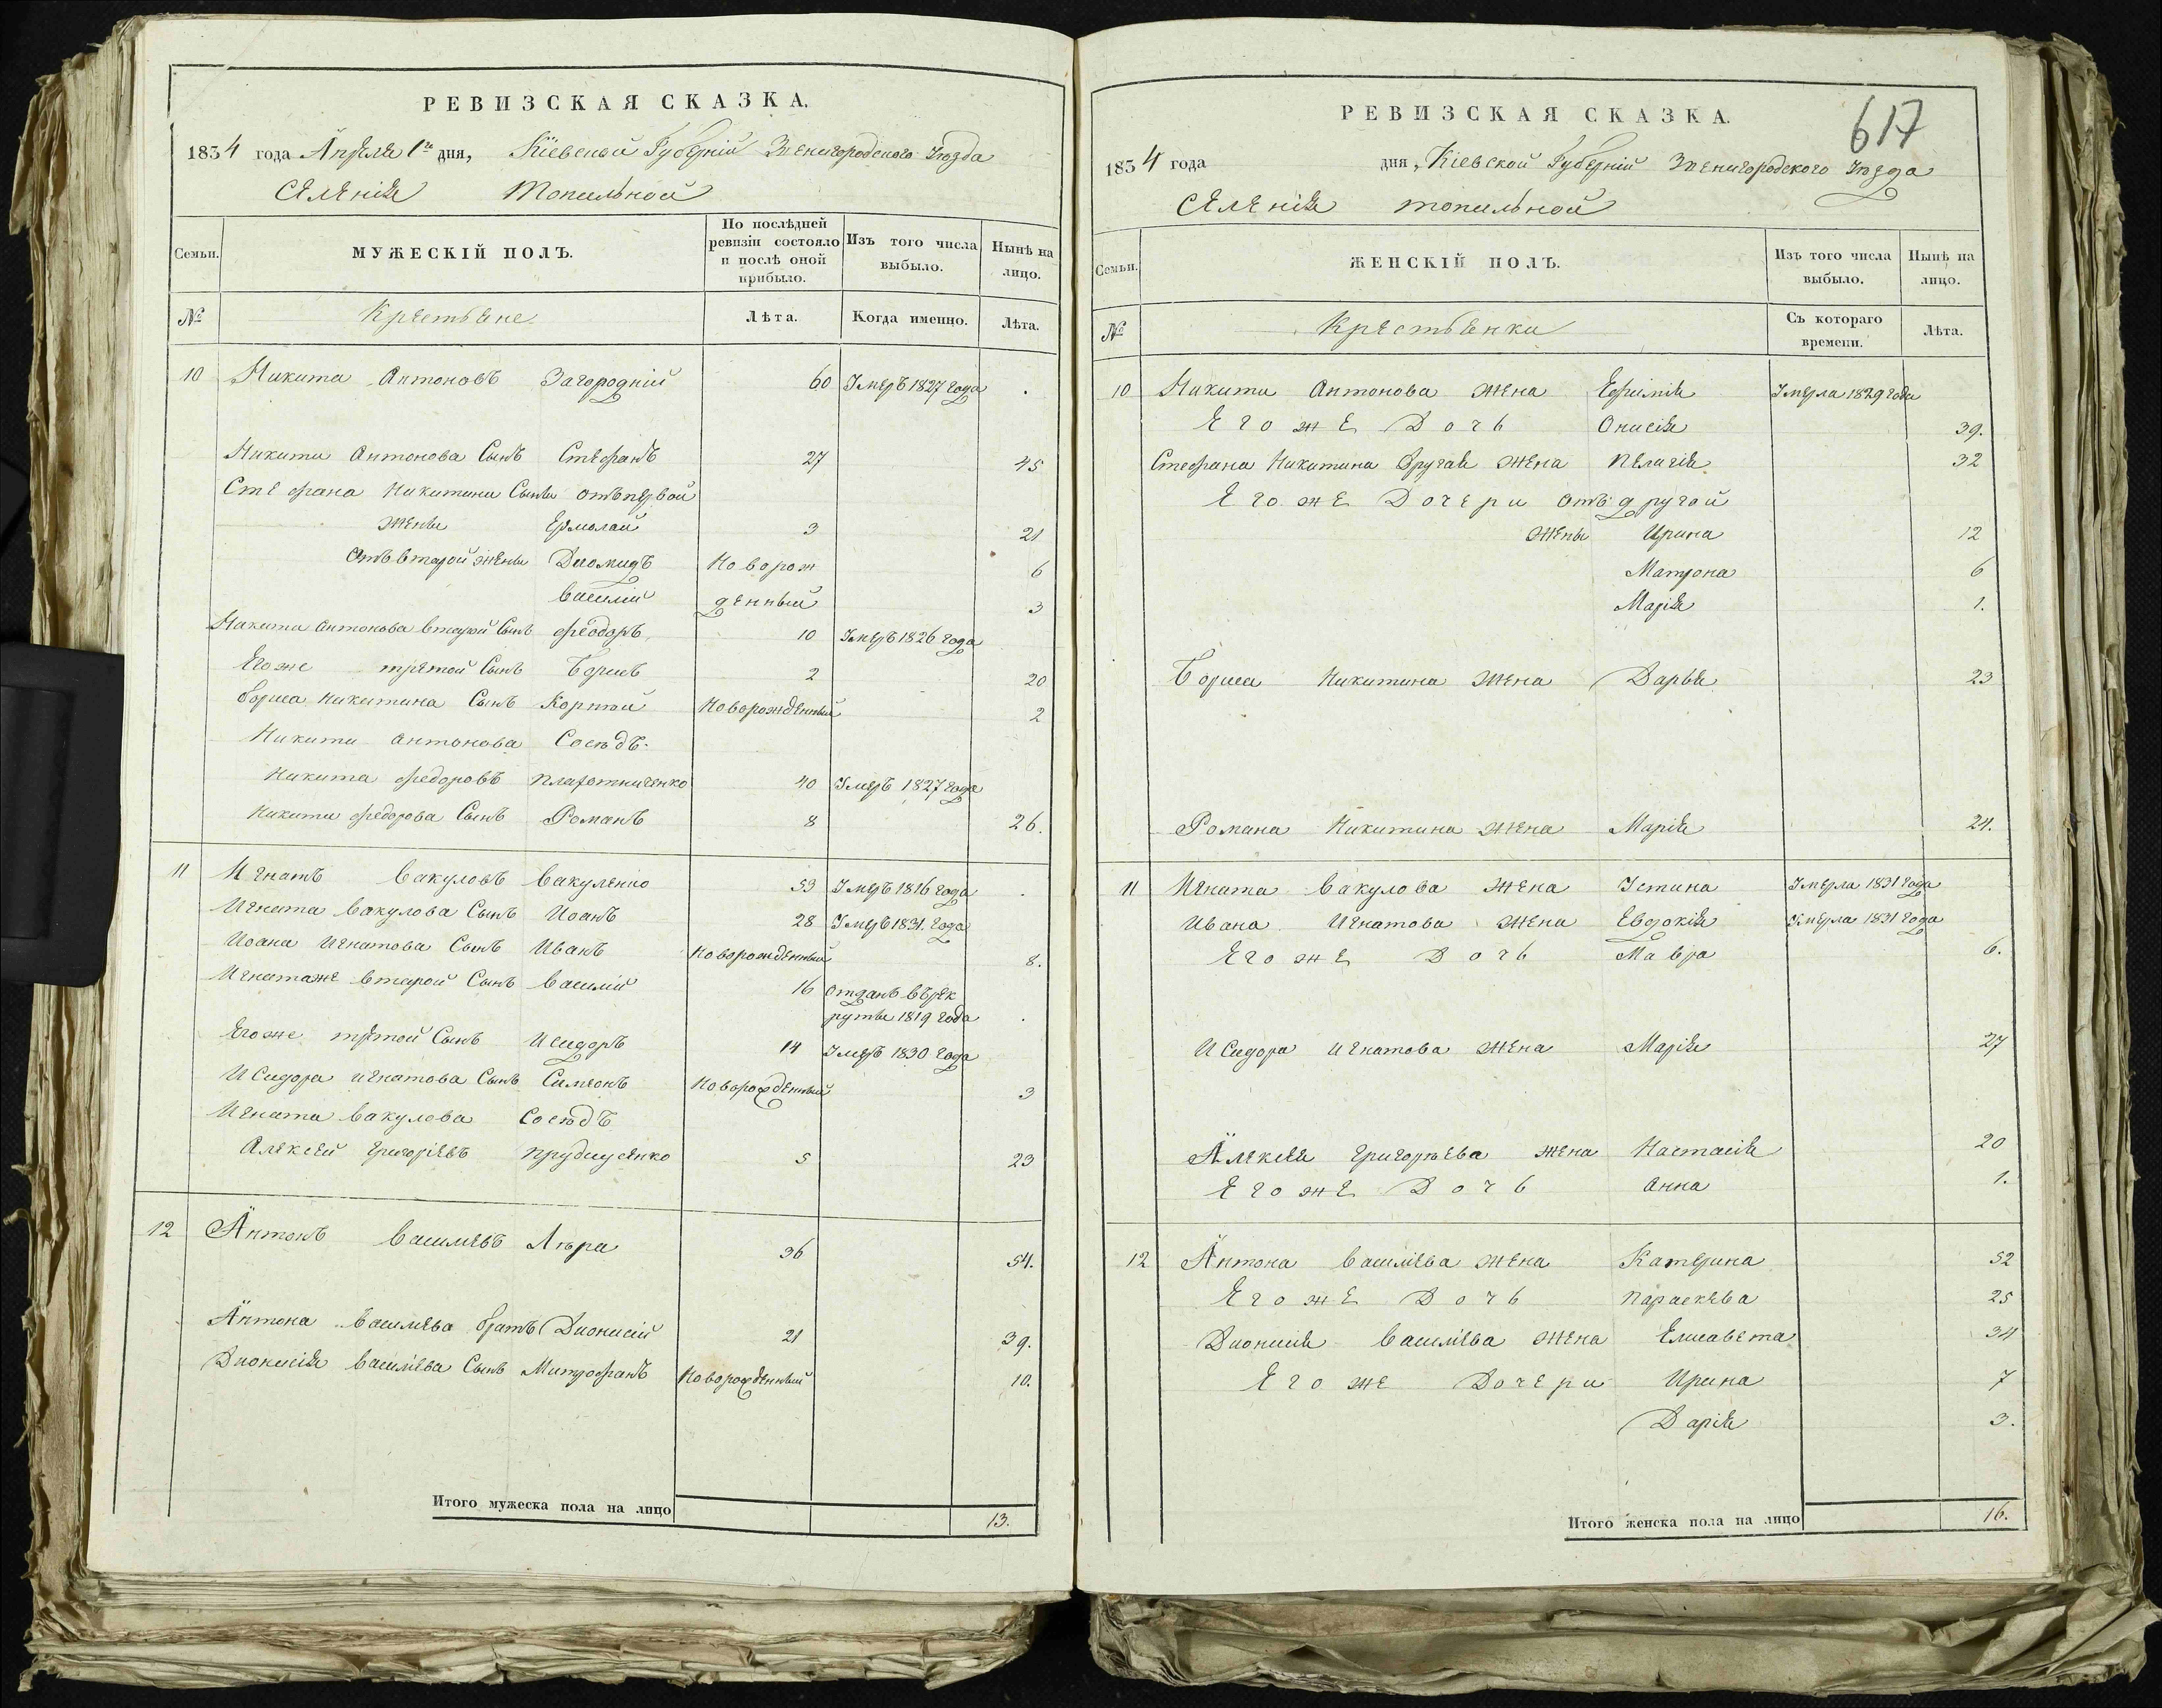 РЕВИЗСКАЯ СКАЗКА.
1834 года Апреля 1го дня, Кіевской Губерніи Звенигородского Уѣзда
Селенія Топильной
Семьи. МУЖЕСКІЙ ПОЛЪ. По послѣдней ревизіи состояло и послѣ оной прибыло. Изъ того числа выбыло. Нынѣ на лицо.
№ Крестьяне Лѣта. Когда именно. Лѣта.
10 Никита Антоновъ Загородній 60 Умеръ 1827 года .
Никиты Антонова Сынъ Стефанъ 27 45
Стефана Никитина Сыны отъ первой
жены Ермолай 3 21
Отъ второй жены Диомидъ Новорож 6
Василій денный 3
Никиты Антонова вторий Сынъ Феодоръ 10 Умеръ 1826 года
Егоже третой Сынъ Борисъ 2 20
Бориса Никитина Сынъ Корній Новорожденный 2
Никиты Антонова Сосѣдъ.
Никита Федоровъ Плахотниченко 40 Умеръ 1827 года
Никиты Федорова Сынъ Романъ 8 26.
11 Игнатъ Вакуловъ Вакуленко 53 Умеръ 1816 года .
Игната Вакулова Сынъ Иоанъ 28 Умеръ 1831. года
Иоана Игнатова Сынъ Иванъ Новорожденный 8.
Игнатаже второй Сынъ Василій 16 отданъ въ рек
руты 1819 года .
Егоже третой Сынъ Исидоръ 14 Умеръ 1830 года
Исидора Игнатова Сынъ Симеонъ Новорожденный 3
Игната Вакулова Сосѣдъ
Алексей Григоріевъ 5 23
12 Антонъ Василіевъ Лѣра 36 54.
Антона Василіева братъ Дионисій 21 39.
Дионисія Василіева Сынъ Митрофанъ Новорожденный 10.
Итого мужеска пола на лицо 13.
617
РЕВИЗСКАЯ СКАЗКА.
1834 года дня, Кіевской Губерніи Звенигородского Уѣзда
Селенія топильной
Семьи. ЖЕНСКІЙ ПОЛЪ. Изъ того числа выбыло. Нынѣ на лицо.
№ Крестьянки Съ котораго времени. Лѣта.
10 Никиты Антонова жена Ефимія Умерла 1829 года
Егоже Дочь Онисія 39.
Стефана Никитина другая жена Пелагія 32
Егоже Дочери отъ другой
жены Ирина 12
Матрона 6
Марія 1.
Бориса Никитина жена Дарья 23
Романа Никитина жена Марія 24.
11 Игната Вакулова жена Устина Умерла 1831 года
Ивана Игнатова жена Евдокія Умерла 1831 года
Егоже Дочь Мавра 6.
Исидора Игнатова жена Марія 27
Алексея Григорьева жена Настасія 20
Егоже Дочь Анна 1.
12 Антона Василіева жена Катерина 52
Егоже Дочь Параскева 25
Дионисія Василіева жена Елисавета 34
Егоже Дочери Ирина 7
Дарія 3.
Итого женска пола на лицо 16.